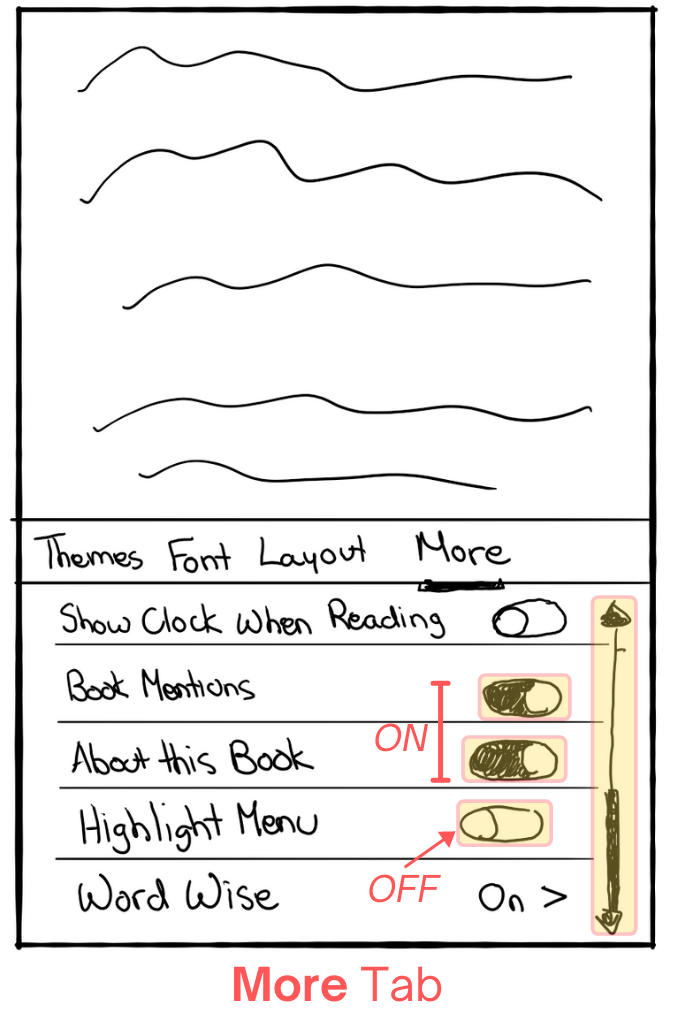 Themes Font Layout More
Show Clock When Reading
Book Mentions
ON
About this Book
Highlight Menu
OFF
Word Wise On >
More Tab